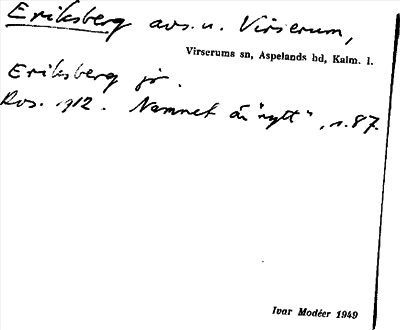 Eriksberg avs. u. Virserum,
Virserums sn, Aspelands hd, Kalm. l.
Eriksberg jr.
Avs. 1912. Namnet är "nytt", s. 87.
Ivar Modéer 1949